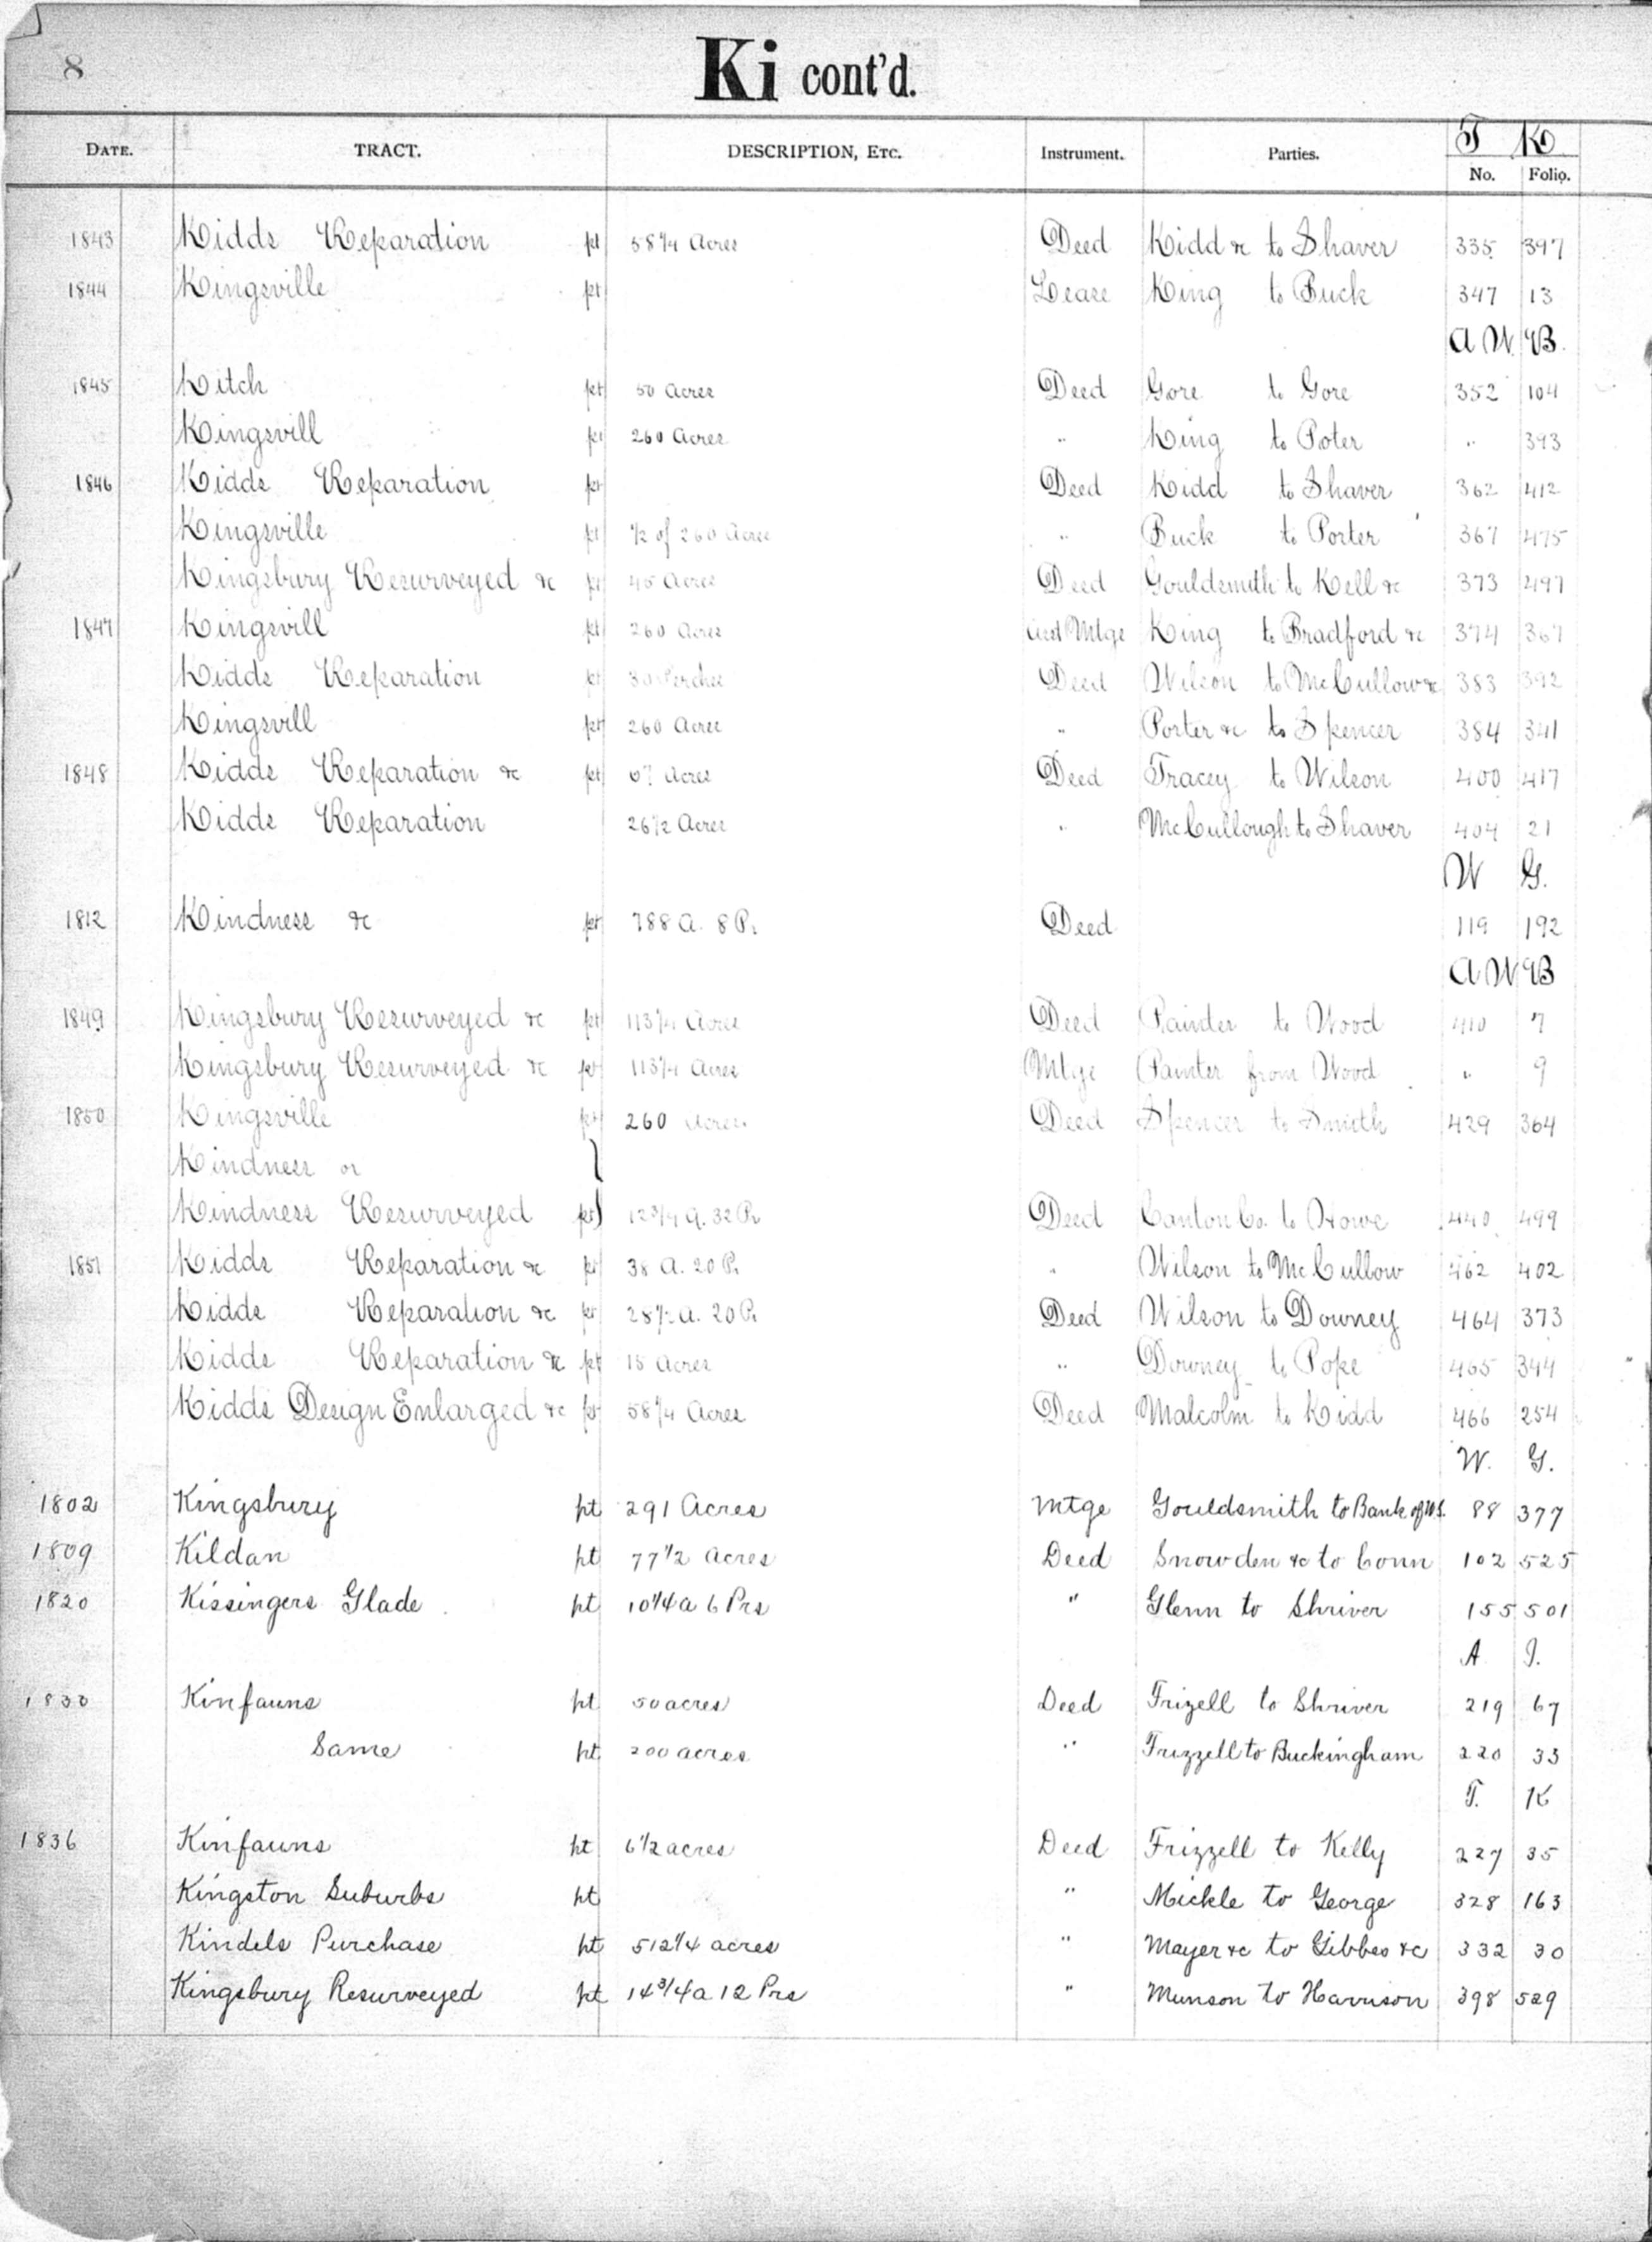 8
Ki cont'd.
T K
DATE. TRACT. DESCRIPTION, ETC. Instrument. Parties. No. Folio.
1843 Kidds Reparation pt 58 1/4 Acres Deed Kidd &c to Shaver 335 397
1844 Kingsville pt Lease King to Buck 347 13
A W B.
1845 Kitch pt 50 Acres Deed Gore to Gore 352 104
Kingsvill pt 260 Acres " King to Poter " 393
1846 Kidds Reparation pt Deed Kidd to Shaver 362 412
Kingsville pt 1/2 of 260 Acres " Buck to Porter 367 475
Kingsbury Resurveyed &c pt 45 Acres Deed Gouldsmith to Kell &c 373 497
1847 Kingsvill pt 260 Acres Mtge King to Bradford &c 374 367
Kidds Reparation pt Perches Deed Wilson to McCullow &c 383 392
Kingsvill pt 260 Acres " Porter &c to Spencer 384 341
1848 Kidds Reparation &c pt Acres Deed Tracey to Wilson 400 417
Kidds Reparation 26 1/2 Acres " McCullough to Shaver 404 21
W G.
1812 Kindness &c pt 788 A. 8 P. Deed 119 192
A W B
1849 Kingsbury Resurveyed &c pt 113 1/4 Acres Deed Painter to Wood 410 7
Kingsbury Resurveyed &c pt 113 1/4 Acres Mtge Painter from Wood " 9
1850 Kingsville pt 260 Acres Deed Spencer to Smith 429 364
Kindness or }
Kindness Resurveyed pt } 12 3/4 A. 32 P. Deed Canton Co. to Howe 440 499
1851 Kidds Reparation &c pt 38 A. 20 P. " Wilson to McCullow 462 402
Kidds Reparation &c pt 28 1/2 A. 20 P. Deed Wilson to Downey 464 373
Kidds Reparation &c pt 15 Acres " Downey to Pope 465 344
Kidds Design Enlarged &c pt 58 1/4 Acres Deed Malcolm to Kidd 466 254
W. G.
1802 Kingsbury pt 291 Acres Mtge Gouldsmith to Bank of U.S. 88 377
1809 Kildan pt 77 1/2 Acres Deed Snowden &c to Conn 102 525
1820 Kissingers Glade pt 10 1/4 a 6 Prs " Glenn to Shriver 155 501
A I.
1830 Kinfauns pt 50 acres Deed Frizell to Shriver 219 67
Same pt 200 acres " Frizzell to Buckingham 220 33
T. K
1836 Kinfauns pt 6 1/2 acres Deed Frizzell to Kelly 227 35
Kingston Suburbs pt " Mickle to George 328 163
Kindels Purchase pt 512 1/4 acres " Mayer &c to Gibbes &c 332 30
Kingsbury Resurveyed pt 14 3/4 a 12 Prs " Munson to Harrison 398 529